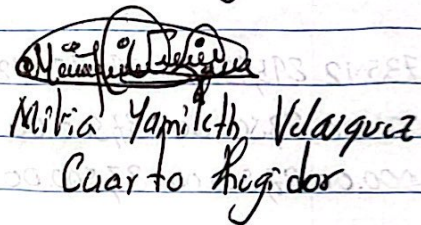 Milia Yamileth Velasquez
Cuarto Regidor